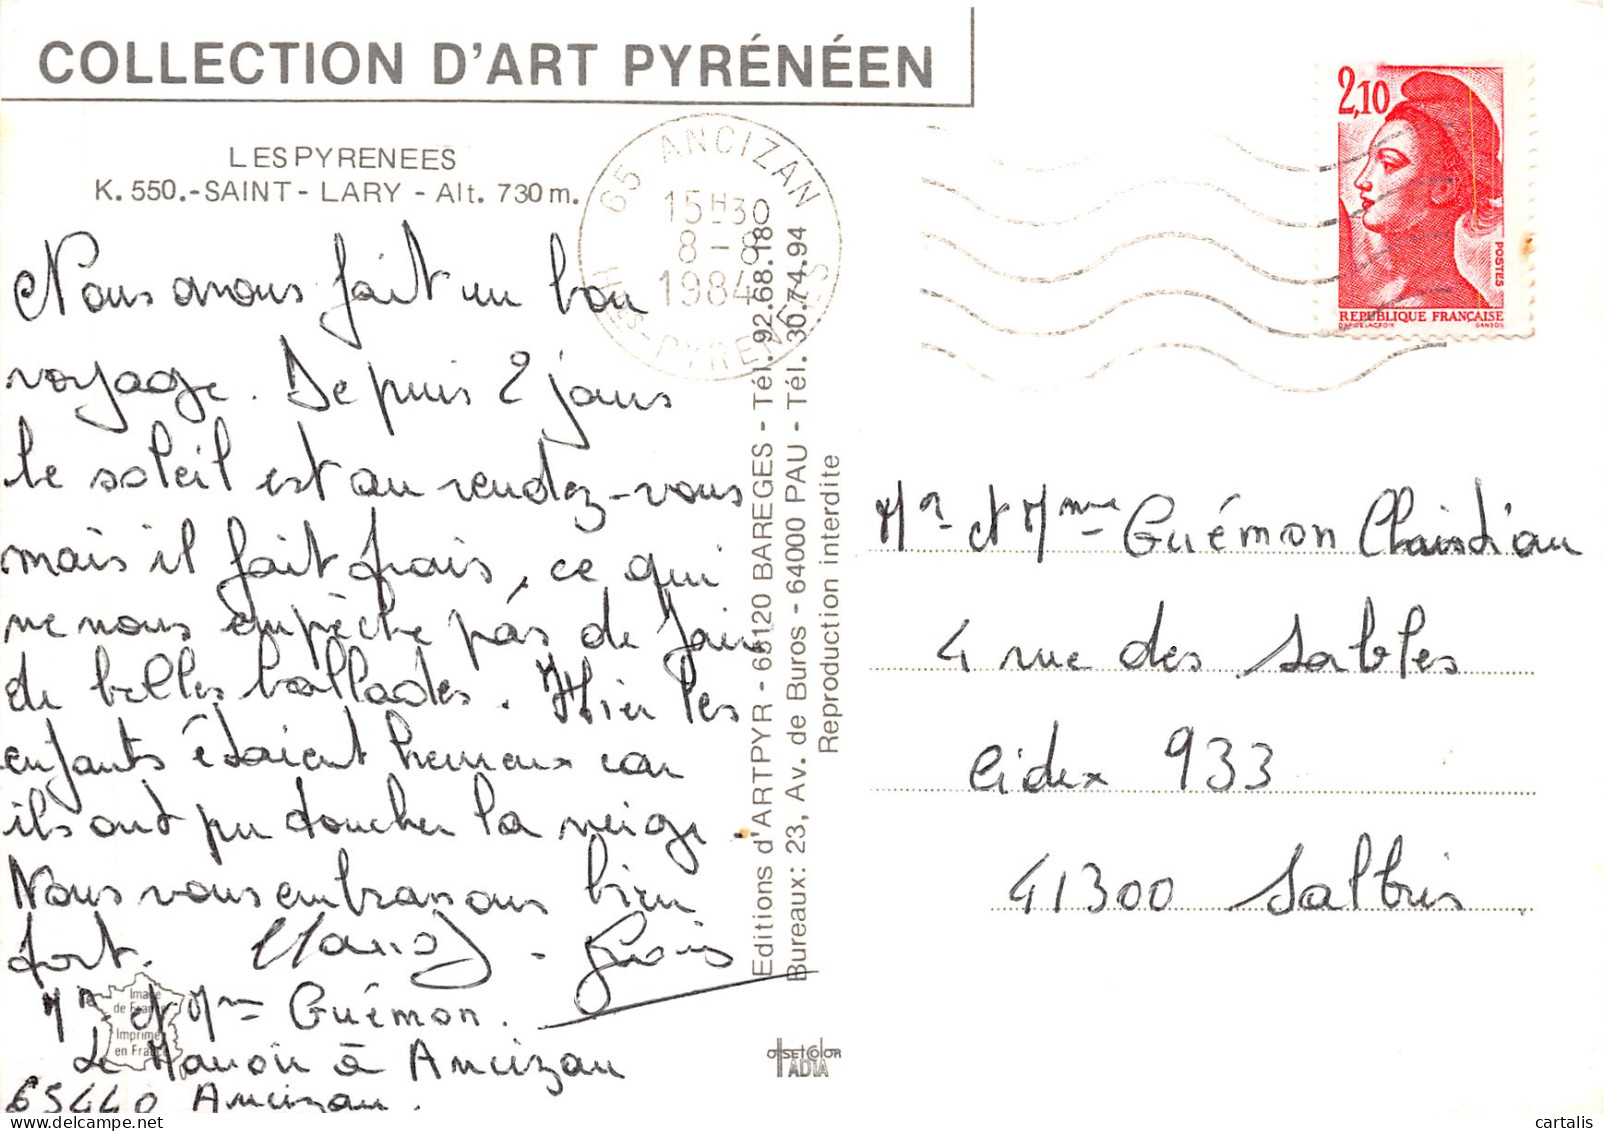 COLLECTION D'ART PYRÉNÉEN
LES PYRENEES
K. 550.-SAINT-LARY - Alt. 730 m.
Nous avons fait un bon
voyage. Depuis 2 jours
le soleil est au rendez-vous
mais il fait frais, ce qui
ne nous empèche pas de faire
de belles ballades. Hier les
enfants étaient heureux car
ils ont pu toucher la neige.
Nous vous embrassons bien
fort.
Mr et Mme Guémon.
Le Manoir à Ancizan
65440 Ancizan.
Image
de France
Imprimé
en France
65 ANCIZAN
15H30
8-8
1984
Htes-PYRENEES
Editions d'ARTPYR - 65120 BAREGES - Tél. 92.68.18
Bureaux: 23, Av. de Buros - 64000 PAU - Tél. 30.74.94
Reproduction interdite
OFFSET COLOR
TADIA
2,10
POSTES
REPUBLIQUE FRANÇAISE
D'APRES DELACROIX GANDON
Mr et Mme Guémon Christian
4 rue des Sables
Cidex 933
41300 Salbris
delcampe.net
cartalis